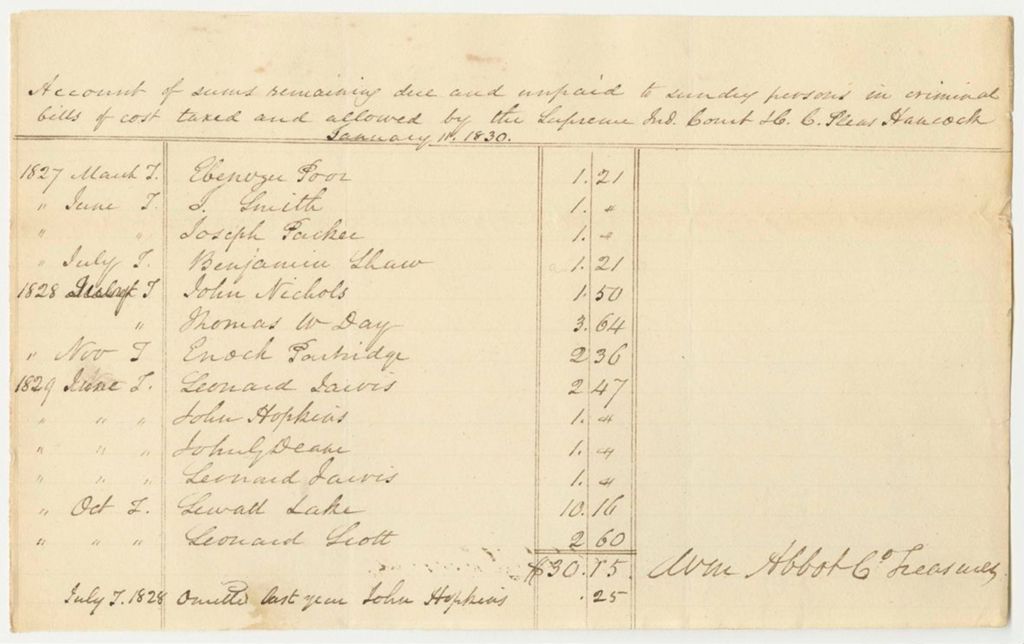 Account of sums remaining due and unpaid to sundry persons in criminal
bills of cost taxed and allowed by the Supreme Jud. Court &c. C. Pleas Hancock
January 1st. 1830.
1827 March T. Ebenezer Poor 1. 21
" June T. S. Smith 1. "
" " Joseph Packer 1. "
" July T. Benjamin Shaw 1. 21
1828 T John Nichols 1. 50
" Thomas W Day 3. 64
" Nov T Enoch Partridge 2 36
1829 June T. Leonard Jarvis 2 47
" " " John Hopkins 1. "
" " " John G Deane 1. "
" " " Leonard Jarvis 1. "
" Oct T. Sewall Lake 10. 16
" " " Leonard Scott 2 60
$30. 15. Wm Abbot Co Treasurer
July T. 1828 Omitted last year John Hopkins . 25